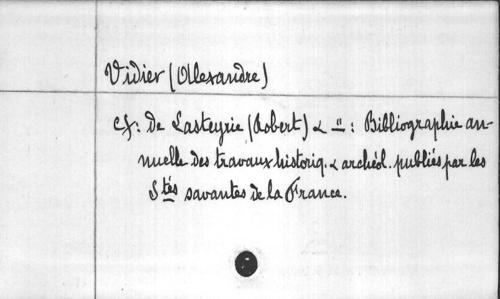 Vidier (Alexandre)
cf: de Lasteyrie (Robert) & — " : Bibliographie an-
nuelle des travaux historiq. & archéol. publiés par les
Stés savantes de la France.